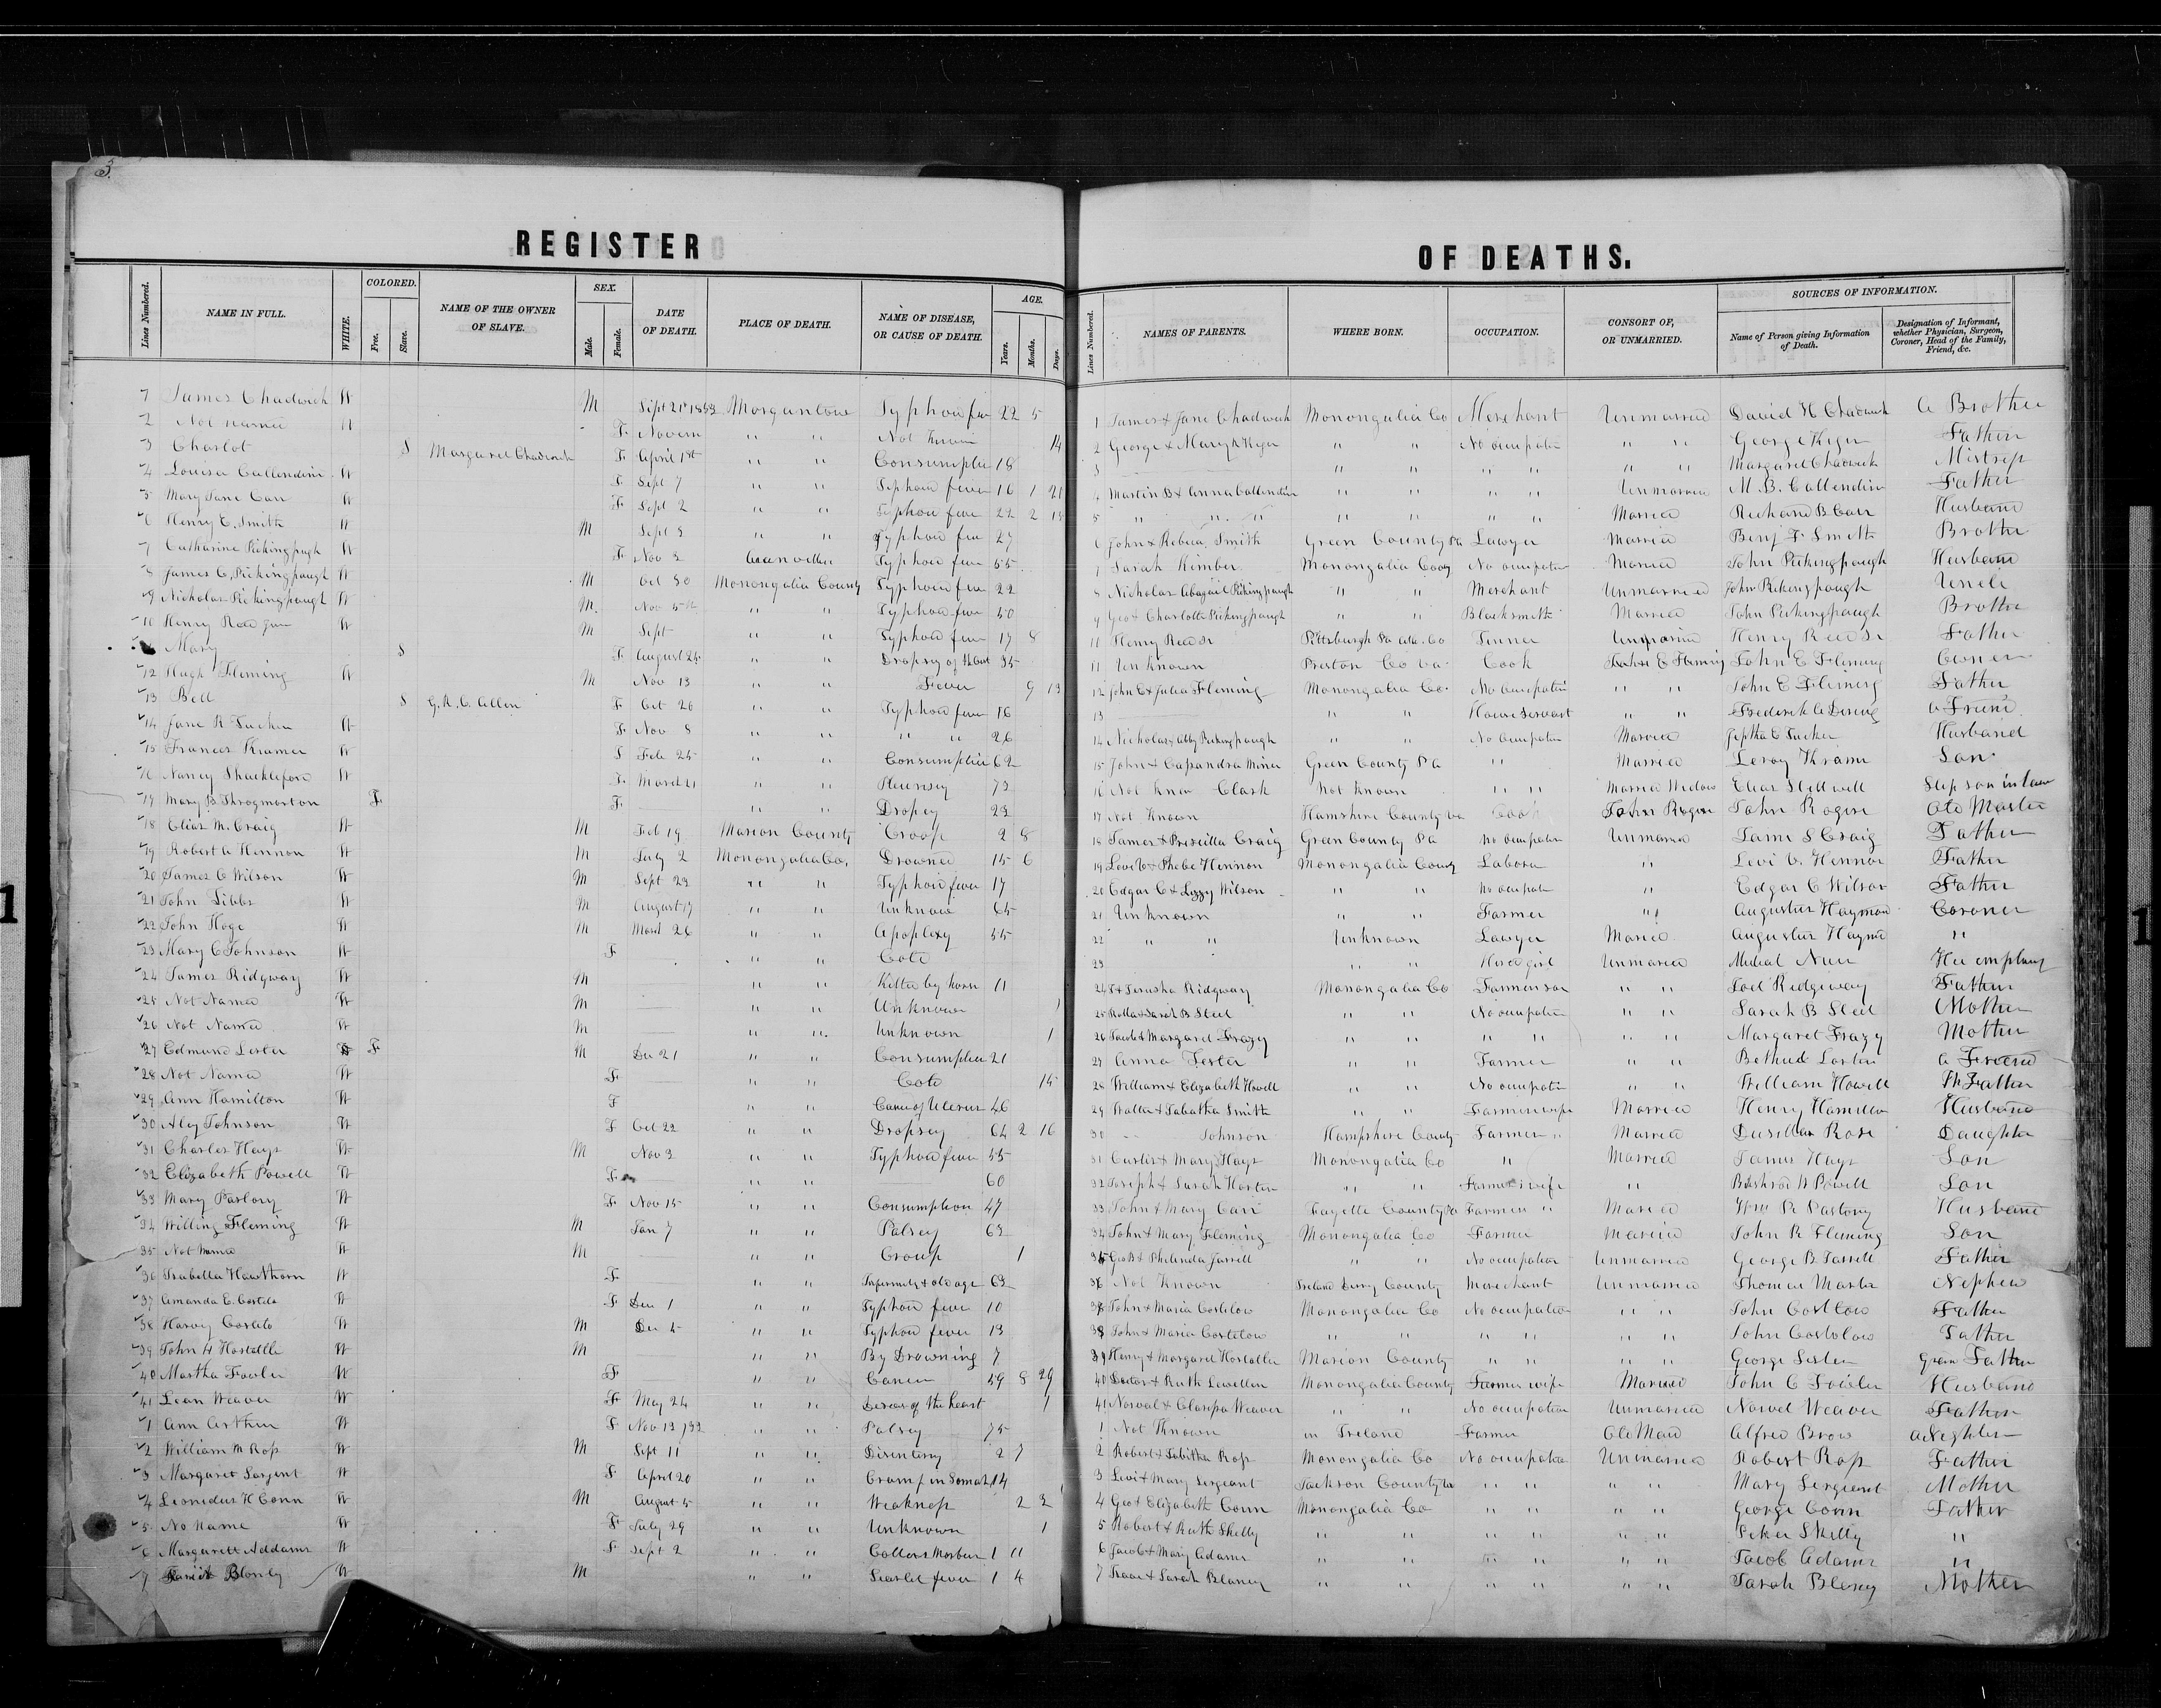 3.
REGISTER OF DEATHS.
Lines Numbered. NAME IN FULL. WHITE. COLORED. Free. Slave. NAME OF THE OWNER OF SLAVE. SEX. Male. Female. DATE OF DEATH. PLACE OF DEATH. NAME OF DISEASE, OR CAUSE OF DEATH. AGE. Years. Months. Days. Lines Numbered. NAMES OF PARENTS. WHERE BORN. OCCUPATION. CONSORT OF, OR UNMARRIED. SOURCES OF INFORMATION. Name of Person giving Information of Death. Designation of Informant, whether Physician, Surgeon, Coroner, Head of the Family, Friend, &c.
1 James Chadwick W M Sept 21st 1853 Morgantown Typhoid fever 22 5 1 James & Jane Chadwick Monongalia Co Merchant Unmarried David H Chadwick a Brother
2 Not named W F Novem " " Not Known 14 2 George & Mary K Kiger " " No occupation " " George Kiger Father
3 Charlot S Margaret Chadwick F April 1st " " Consumption 18 3 " " " " " " Margaret Chadwick Mistress
4 Louisa Callendine W F Sept 7 " " Typhoid fever 16 1 21 4 Martin B & Anna Callendine " " " " Unmarried M. B. Callendine Father
5 Mary Jane Carr W F Sept 2 " " Typhoid fever 22 2 15 5 " " " " " " " Married Richard B Carr Husband
6 Henry E. Smith W M Sept 3 " " Typhoid fever 27 6 John & Rebeca Smith Green County Pa Lawyer Married Benj F Smith Brother
7 Catharine Pickingpaugh W F Nov 3 Typhoid fever 55 7 Sarah Kimber Monongalia Couty No occupation Married John Pickingpaugh Husband
8 James C, Pickingpaugh W M Oct 30 Monongalia County Typhoid fever 22 8 Nicholas Abagail Pickingpaugh " " Merchant Unmarried John Pickingpaugh Uncle
9 Nicholas Pickingpaugh W M. Nov 5th " " Typhoid fever 50 9 Geo & Charlotte Pickingpaugh " " Blacksmith Married John Pickingpaugh Brother
10 Henry Reed jun W M Sept " " Typhoid fever 17 8 11 Henry Reed Sr Pittsburgh Pa Ala. Co Tinner Unmarried Henry Reed Sr Father
Mary S F August 25 " " Dropsy of Heart 35 11 Unknown Preston Co Va. Cook John E Fleming John E Fleming Owner
12 Hugh Fleming W M Nov 13 " " Fever 9 13 12 John E & Julia Fleming Monongalia Co. No occupation " " John E Fleming Father
13 Bell S G. R. C. Allen F Oct 26 " " Typhoid fever 16 13 " " House Servant " " Frederick A Dering a Friend
14 Jane R Tucker W F Nov 8 " " " " 26 14 Nicholas & Abby Pickingpaugh " " No occupation Married Jeptha C Tucker Husband
15 Frances Kramer W F Feb 25 " " Consumption 62 15 John & Cassandra Miner Green County Pa " Married Leroy Kramer Son
16 Nancy Shackleford W F March 21 " " Pleurisy 73 16 Not know Clark Not known " " Married Widow Elias Stillwell Step son in law
17 Mary B. Throgmorton F F " " Dropsy 23 17 Not Known Hamshire County Va Cook John Rogers John Rogers Old Master
18 Elias M. Craig W M Feb 19 Marion County Croop 2 8 18 James & Prescilla Craig Green County Pa no occupation Unmarried Jame S Craig Father
19 Robert A Hennon W M July 2 Monongalia Co, Drowned 15 6 19 Levi C & Phebe Hennon Monongalia County Laborer " Levi C. Hennon Father
20 James C Wilson W M Sept 23 " " Typhoid fever 17 20 Edgar C & Lizzy Wilson " " no occupation " Edgar C Wilson Father
21 John Libbs W M August 17 " " Unknown 65 21 Unknown " " Farmer " Augustus Haymond Coroner
22 John Hoge W M March 26 " " Apoplexy 55 22 " " Unknown Lawyer Married Augustus Haymd "
23 Mary C Johnson W F " " Cold 23 " " Hired girl Unmarried
24 James Ridgway W M " " Killed by horse 11 24 & Jerusha Ridgway Monongalia Co Farmer son " " Joel Ridgeway Father
25 Not Named W M " " Unknown 1 25 Rolla & Sarah B Steel " " No occupation " " Sarah B Steel Mother
26 Not Named W M " " Unknown 1 26 Jacob & Margaret Frazy " " " " " " Margaret Frazy Mother
27 Edmund Lester F M Dec 21 " " Consumption 21 27 Anna Lester " " Farmer " " a Friend
28 Not Named W F " " Cold 15 28 William & Elizabeth Howell " " No occupation " " William Howell Father
29 Ann Hamilton W F " " Cancer of Uterus 46 29 Walter & Tabatha Smith " " Farmers wife Married Henry Hamilton Husband
30 Aley Johnson W F Oct 22 " " Dropsey 64 2 16 30 Johnson Hampshire County Farmer " Married Drusillar Rose Daughter
31 Charles Hays W M Nov 3 " " Typhoid fever 55 31 Curtis & Mary Hays Monongalia Co " Married James Hays Son
32 Elizabeth Powell W F " " 60 32 Joseph & Sarah Horton " " Farmers wife " Powell Son
33 Mary Parlory W F Nov 15 " " Consumption 47 33 John & Mary Carr Fayette County Pa Farmer " Married Wm R Parlory Husband
34 Willing Fleming W M Jan 7 " " Palsey 63 34 John & Mary Fleming Monongalia Co Farmer Married John R Fleming Son
35 Not Named W M " " Croup 1 35 Geo B & Phelinda Jarrell " " No occupation Unmarried George B Jarrell Father
36 Isabella Hawthorn W F " " Infirmity & old age 63 36 Not Known Ireland Derry County Merchant Unmarried Thomas Master Nephew
37 Amanda E. Costelo W F Dec 1 " " Typhoid fever 10 37 John & Maria Costelow Monongalia Co No occupation " " John Costlow Father
38 Harvy Costelo W M Dec 5 " " Typhoid fever 13 38 John & Maria Costelow " " " " " " John Costolow Father
39 John H Hostettle W M " " By Drowning 7 39 Henry & Margaret Hostettler Marion County " " " " George Lister Gran Father
40 Martha Fowler W F " " Cancer 59 8 29 40 Doctor & Ruth Lewellen Monongalia County Farmer wife Married John C Fowler Husband
41 Lean Weaver W F May 24 " " Diseas of the heart 1 41 Norval & Clarissa Weaver " " No occupation Unmarried Norvel Weaver Father
1 Ann Arthur W F Nov 13 " " Palsey 75 1 Not Known in Ireland Farmer Old Maid Alfred Brow a Neighbor
2 William M Ross W M Sept 11 " " Disentary 2 7 2 Robert & Tabitha Ross Monongalia Co No occupation Unmarried Robert Ross Father
3 Margaret Sargent W F April 20 " " Cramp in Stomach 14 3 Levi & Mary Sergeant Jackson County Va " " " " Mary Sergeant Mother
4 Leonidus H Conn W M August 5 " " Weakness 2 2 4 Geo & Elizabeth Conn Monongalia Co " " " " George Conn Father
5 No Name W F July 29 " " Unknown 1 5 Robert & Ruth Skelly " " " " " " Skelly "
6 Margarett Addams W F Sept 2 " " Collera Morbus 1 11 6 Jacob & Mary Adams " " " " " " Jacob Adams "
7 Blaney W M " " Scarlet fever 1 4 7 Isaac & Sarah Blaney " " " " " " Sarah Blaney Mother